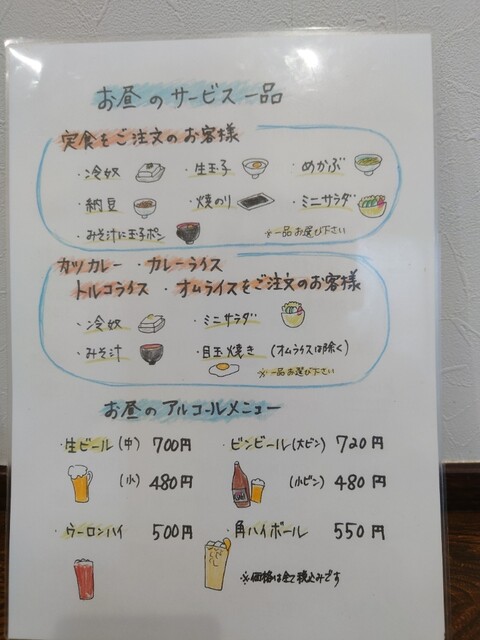 お昼のサービス一品
定食をご注文のお客様
・冷奴 ・生玉子 ・めかぶ
・納豆 ・焼のり ・ミニサラダ
・みそ汁に玉子ポン ※一品お選び下さい
カツカレー ・カレーライス
トルコライス ・オムライスをご注文のお客様
・冷奴 ・ミニサラダ
・みそ汁 ・目玉焼き (オムライスは除く)
※一品お選び下さい
お昼のアルコールメニュー
・生ビール(中) 700円 ・ビンビール(大ビン) 720円
(小) 480円 (小ビン) 480円
・ウーロンハイ 500円 ・角ハイボール 550円
※価格は全て税込みです